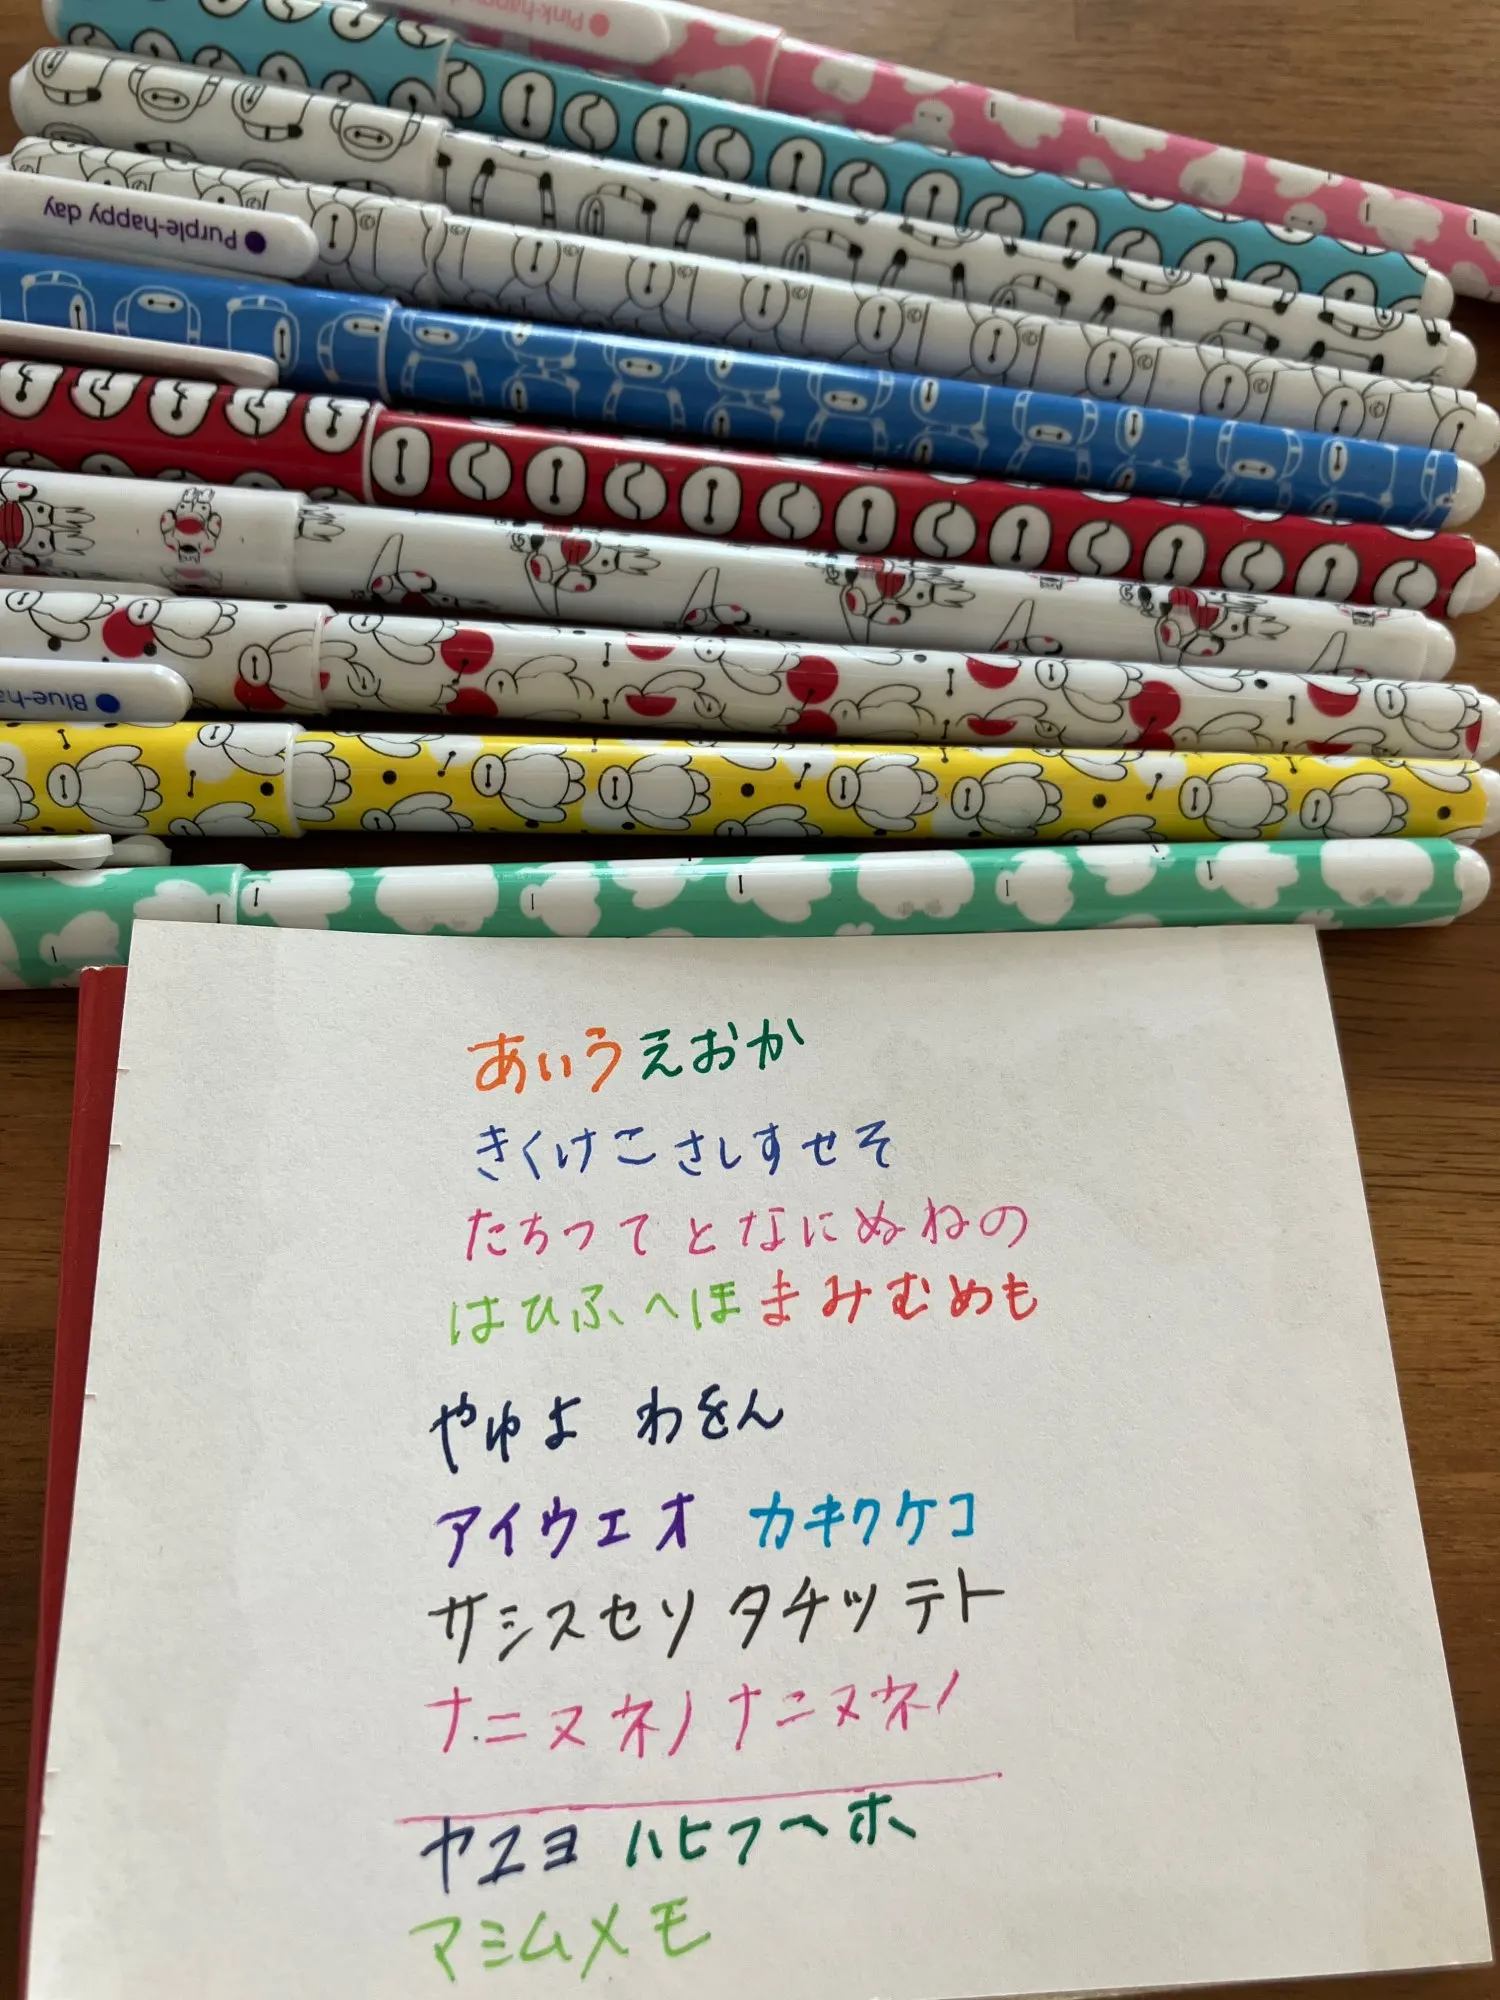 Pink-happy
Purple-happy day
Blue-ha
あいうえおか
きくけこさしすせそ
たちってとなにぬねの
はひふへほまみむめも
やゆよ わをん
アイウエオ カキクケコ
サシスセソ タチツテト
ナニヌネノナニヌネノ
ヤユヨ ハヒフヘホ
マミムメモ